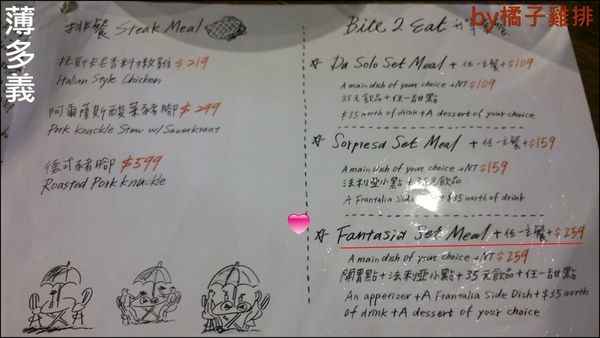 薄多義
by橘子雞排
排餐 Steak Meal
托斯卡尼香料嫩雞 $219
Italian Style Chicken
阿爾薩斯酸菜豬腳 $299
Pork Knuckle Stew w/ Sauerkraut
德式豬腳 $599
Roasted Pork Knuckle
Bite 2 Eat
Da Solo Set Meal + 任一主餐 + $109
A main dish of your choice + NT $109
35元飲品 + 任一甜點
$35 worth of drink + A dessert of your choice
Sorpresa Set Meal + 任一主餐 + $159
A main dish of your choice + NT $159
法利亞小點 + 35元飲品
A Frantalia Side + $35 worth of drink
Fantasia Set Meal + 任一主餐 + $259
A main dish of your choice + NT $259
開胃點 + 法利亞小點 + 35元飲品 + 任一甜點
An appetizer + A Frantalia Side Dish + $35 worth
of drink + A dessert of your choice